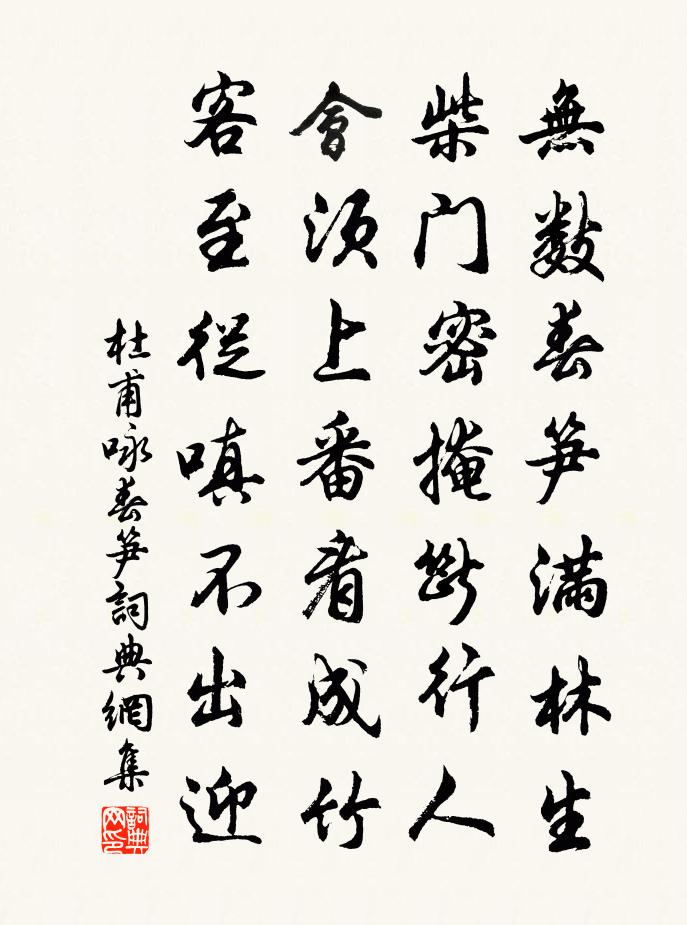 無數春笋滿林生
柴门密掩斷行人
會須上番看成竹
客至從嗔不出迎
杜甫咏春笋詞典網集
詞典网印